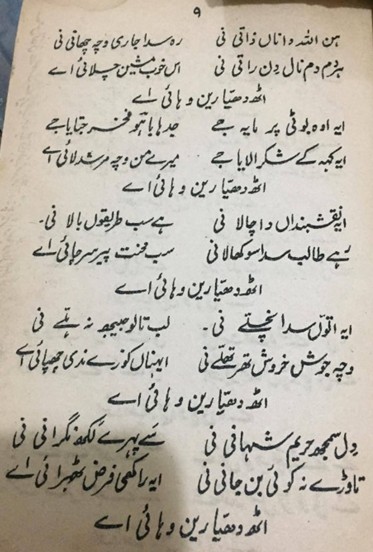 ۹
ہن اللہ دا ناں ذاتی نی رہ سدا جاری وچہ چھاتی نی
ہر دم دم نال دن راتی نی اس خوب مشین چلائی اے
اٹھ دھیا رین وہائی اے
ایہ اوہ بوٹی پر مایہ جے جدہا باہو فخر جتایا جے
ایہ کہہ کے شکر الایا جے میرے من وچہ مرشد لائی اے
اٹھ دھیا رین وہائی اے
ایہ نقشبنداں دا چالا نی ہے سب طریقوں بالا نی۔
رہے طالب سدا سوکھالا نی سب محنت پیر سر چائی اے
اٹھ دھیا رین وہائی اے
ایہ اتوں سدا نچلے نی۔ لب تالو جیبھ نہ ہلے نی
وچہ جوش خروش تھر تھلے نی ایہناں کوزے ندی چھپائی اے
اٹھ دھیا رین وہائی اے
دل سمجھ حریم شہانی نی سے پہرے لکھ نگرانی نی
تا وڑے نہ کوئی بن جانی نی ایہ راکھی فرض ٹھہرائی اے
اٹھ دھیا رین وہائی اے